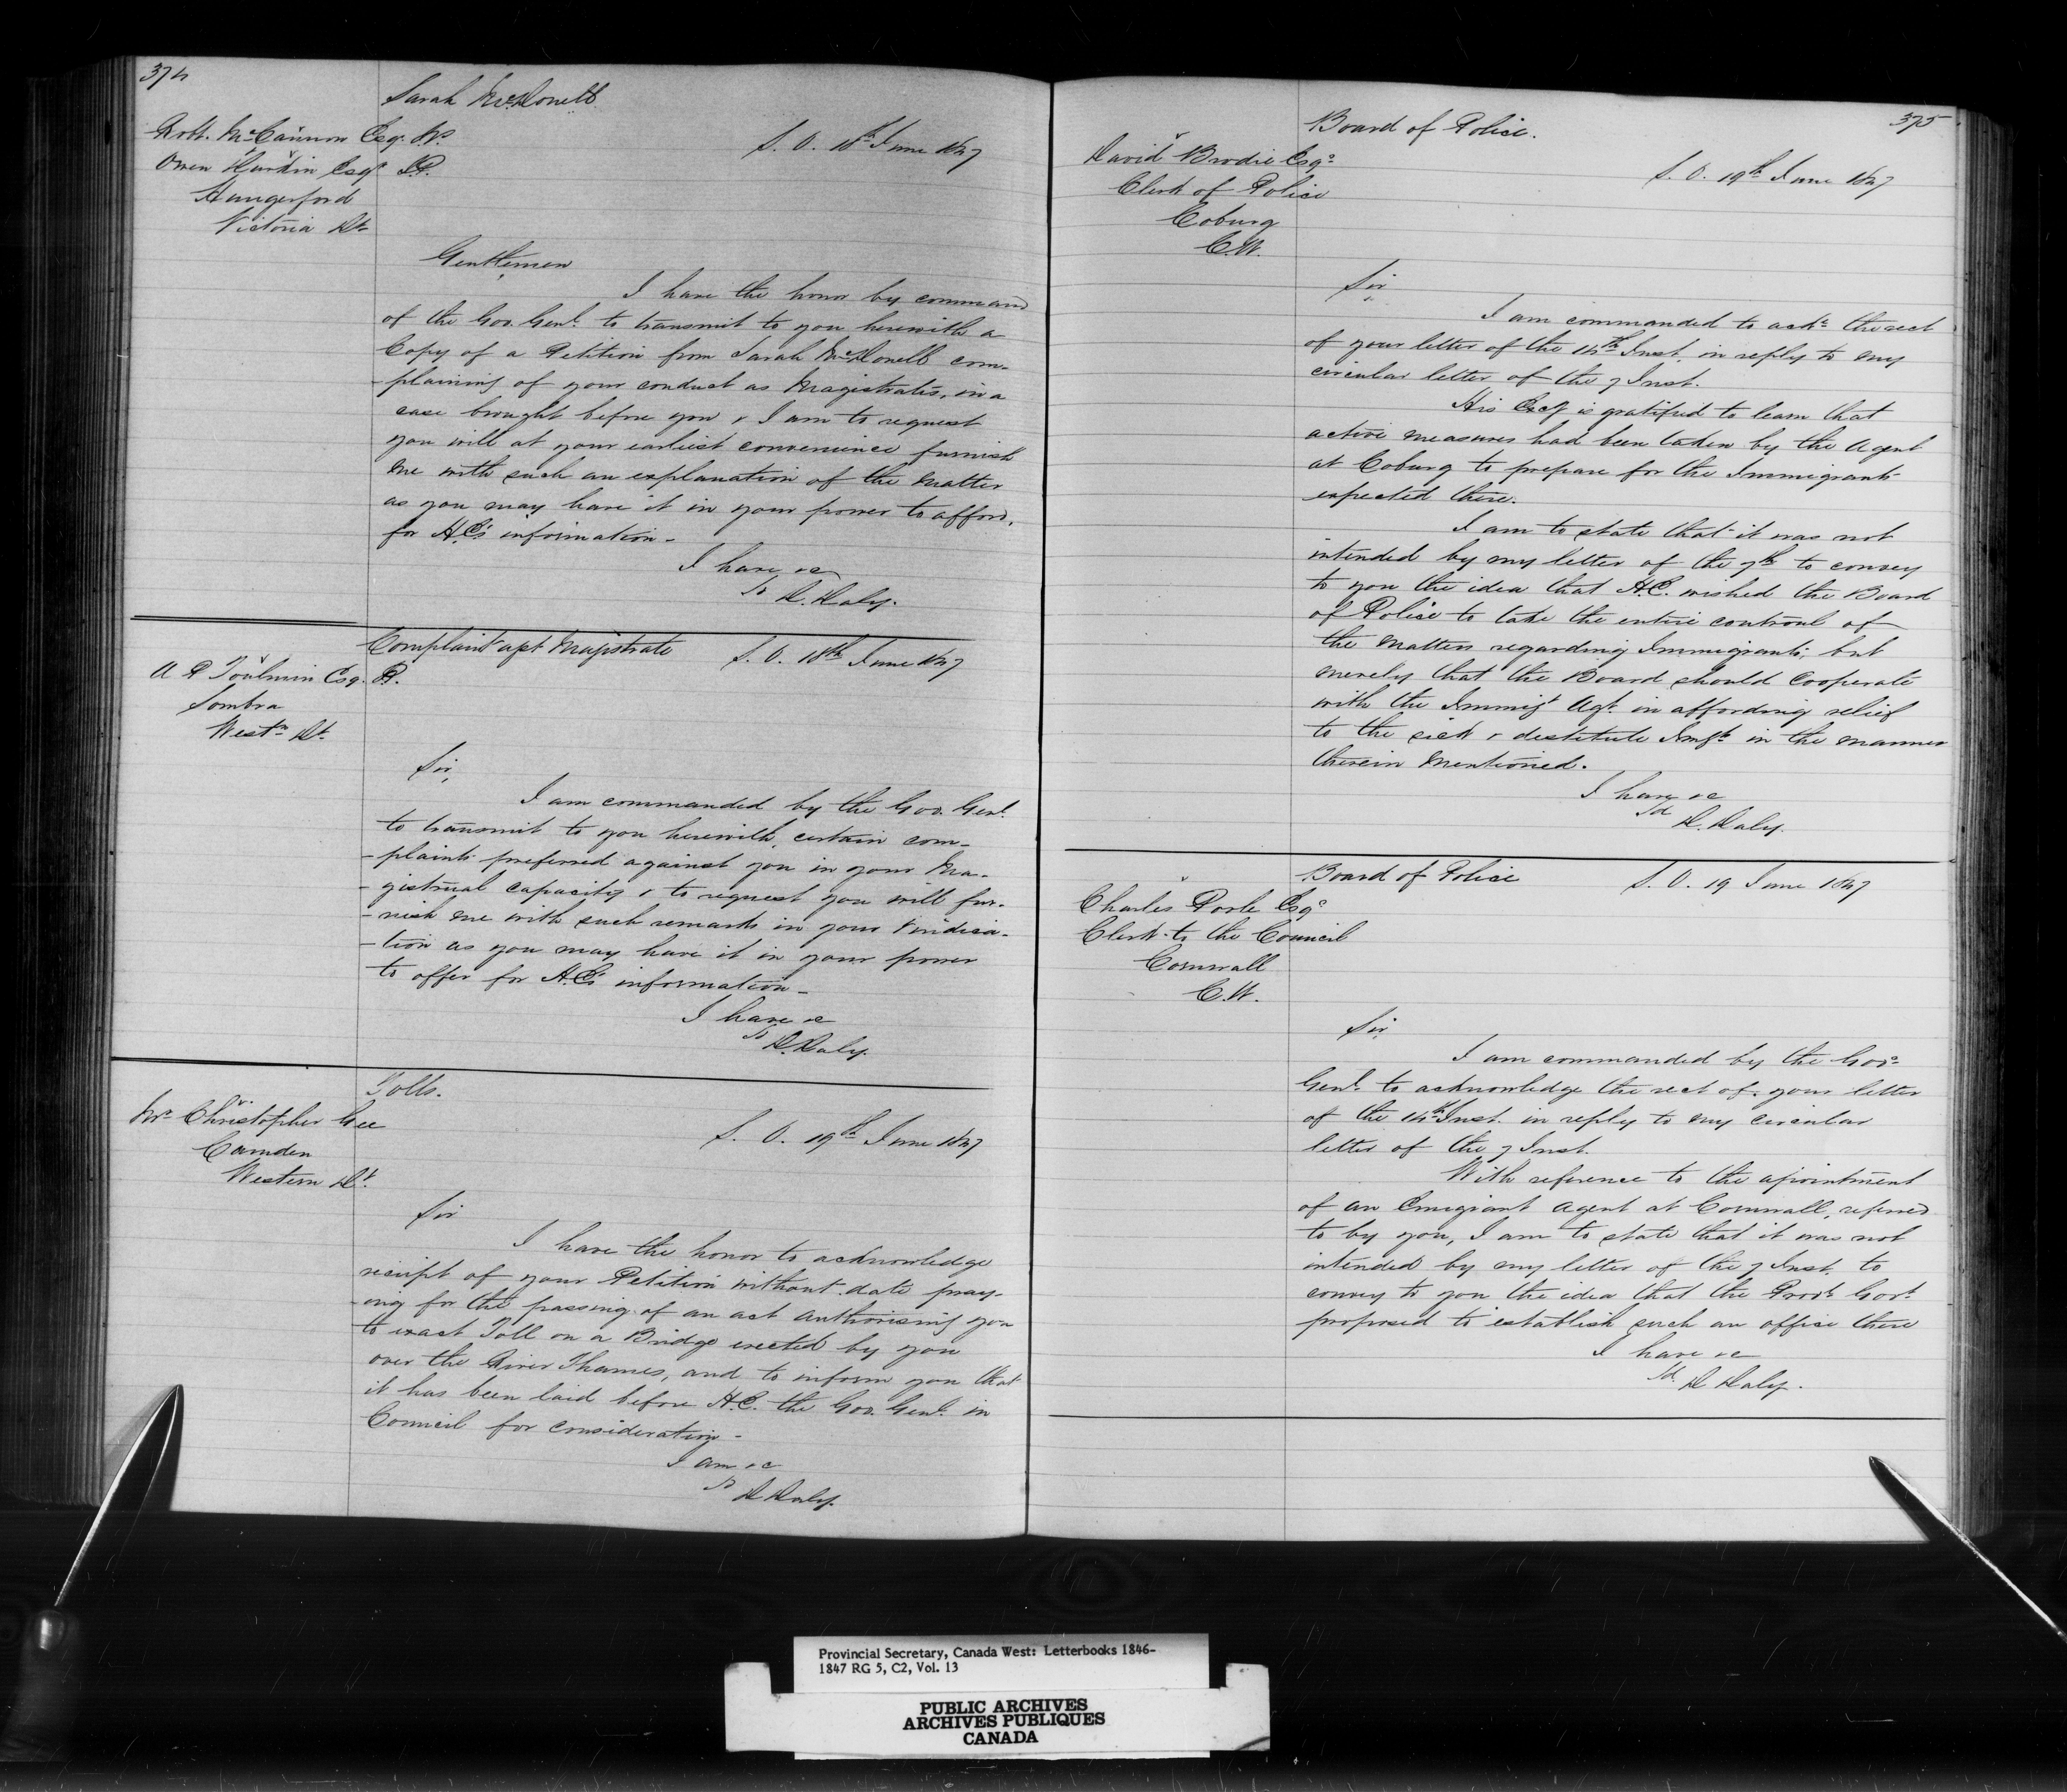 374
Sarah McDonell
Robt. McCannon Esq. JP.
S. O. 18th June 1847
Owen Esqr JP.
Hungerford
Victoria Dt.
Gentlemen
I have the honor by command
of the Gov. Genl. to transmit to you herewith a
Copy of a Petition from Sarah McDonell com-
-plaining of your conduct as Magistrates, in a
case brought before you & I am to request
you will at your earliest convenience furnish
me with such an explanation of the matter
as you may have it in your power to afford,
for H.E's information -
I have &c
Sd D. Daly.
Complaint agst Magistrate
S. O. 18th June 1847
A R Toulmin Esq. JP.
Sombra
Westn Dt.
Sir,
I am commanded by the Gov. Genl.
to transmit to you herewith, certain com-
-plaints preferred against you in your Ma-
-gistrual capacity & to request you will fur-
-nish me with such remarks in your vindica-
-tion as you may have it in your power
to offer for H.E's information -
I have &c
Sd D. Daly.
Tolls.
Mr Christopher Gee
S. O. 19th June 1847
Camden
Western Dt.
Sir
I have the honor to acknowledge
receipt of your Petition without date pray-
-ing for the passing of an act authorising you
to exact Toll on a Bridge erected by you
over the River Thames, and to inform you that
it has been laid before H.E. the Gov. Genl. in
Council for consideration -
I am &c
Sd D Daly.
375
Board of Police.
David Brodie Esqr
S. O. 19th June 1847
Clerk of Police
Coburg
C.W.
Sir
I am commanded to ackn. the rect
of your letter of the 14th Inst. in reply to my
circular letter of the 7 Inst.
His Excy is gratified to learn that
active measures had been taken by the Agent
at Coburg to prepare for the Immigrants
expected there.
I am to state that it was not
intended by my letter of the 7th to convey
to you the idea that H.E. wished the Board
of Police to take the entire controul of
the matters regarding Immigrants; but
merely that the Board should Cooperate
with the Immigt Agt. in affording relief
to the sick & destitute Imgts in the manner
therein mentioned.
I have &c
Sd D. Daly.
Board of Police
S. O. 19 June 1847
Charles Poole Esqr
Clerk to the Council
Cornwall
C.W.
Sir,
I am commanded by the Govr
Genl. to acknowledge the rect of your letter
of the 14th Inst. in reply to my circular
letter of the 7 Inst.
With reference to the apointment
of an Emigrant Agent at Cornwall, referred
to by you, I am to state that it was not
intended by my letter of the 7 Inst. to
convey to you the idea that the Provl Govt.
proposed to establish such an office there
I have &c
Sd. D Daly.
Provincial Secretary, Canada West: Letterbooks 1846-
1847 RG 5, C2, Vol. 13
PUBLIC ARCHIVES
ARCHIVES PUBLIQUES
CANADA